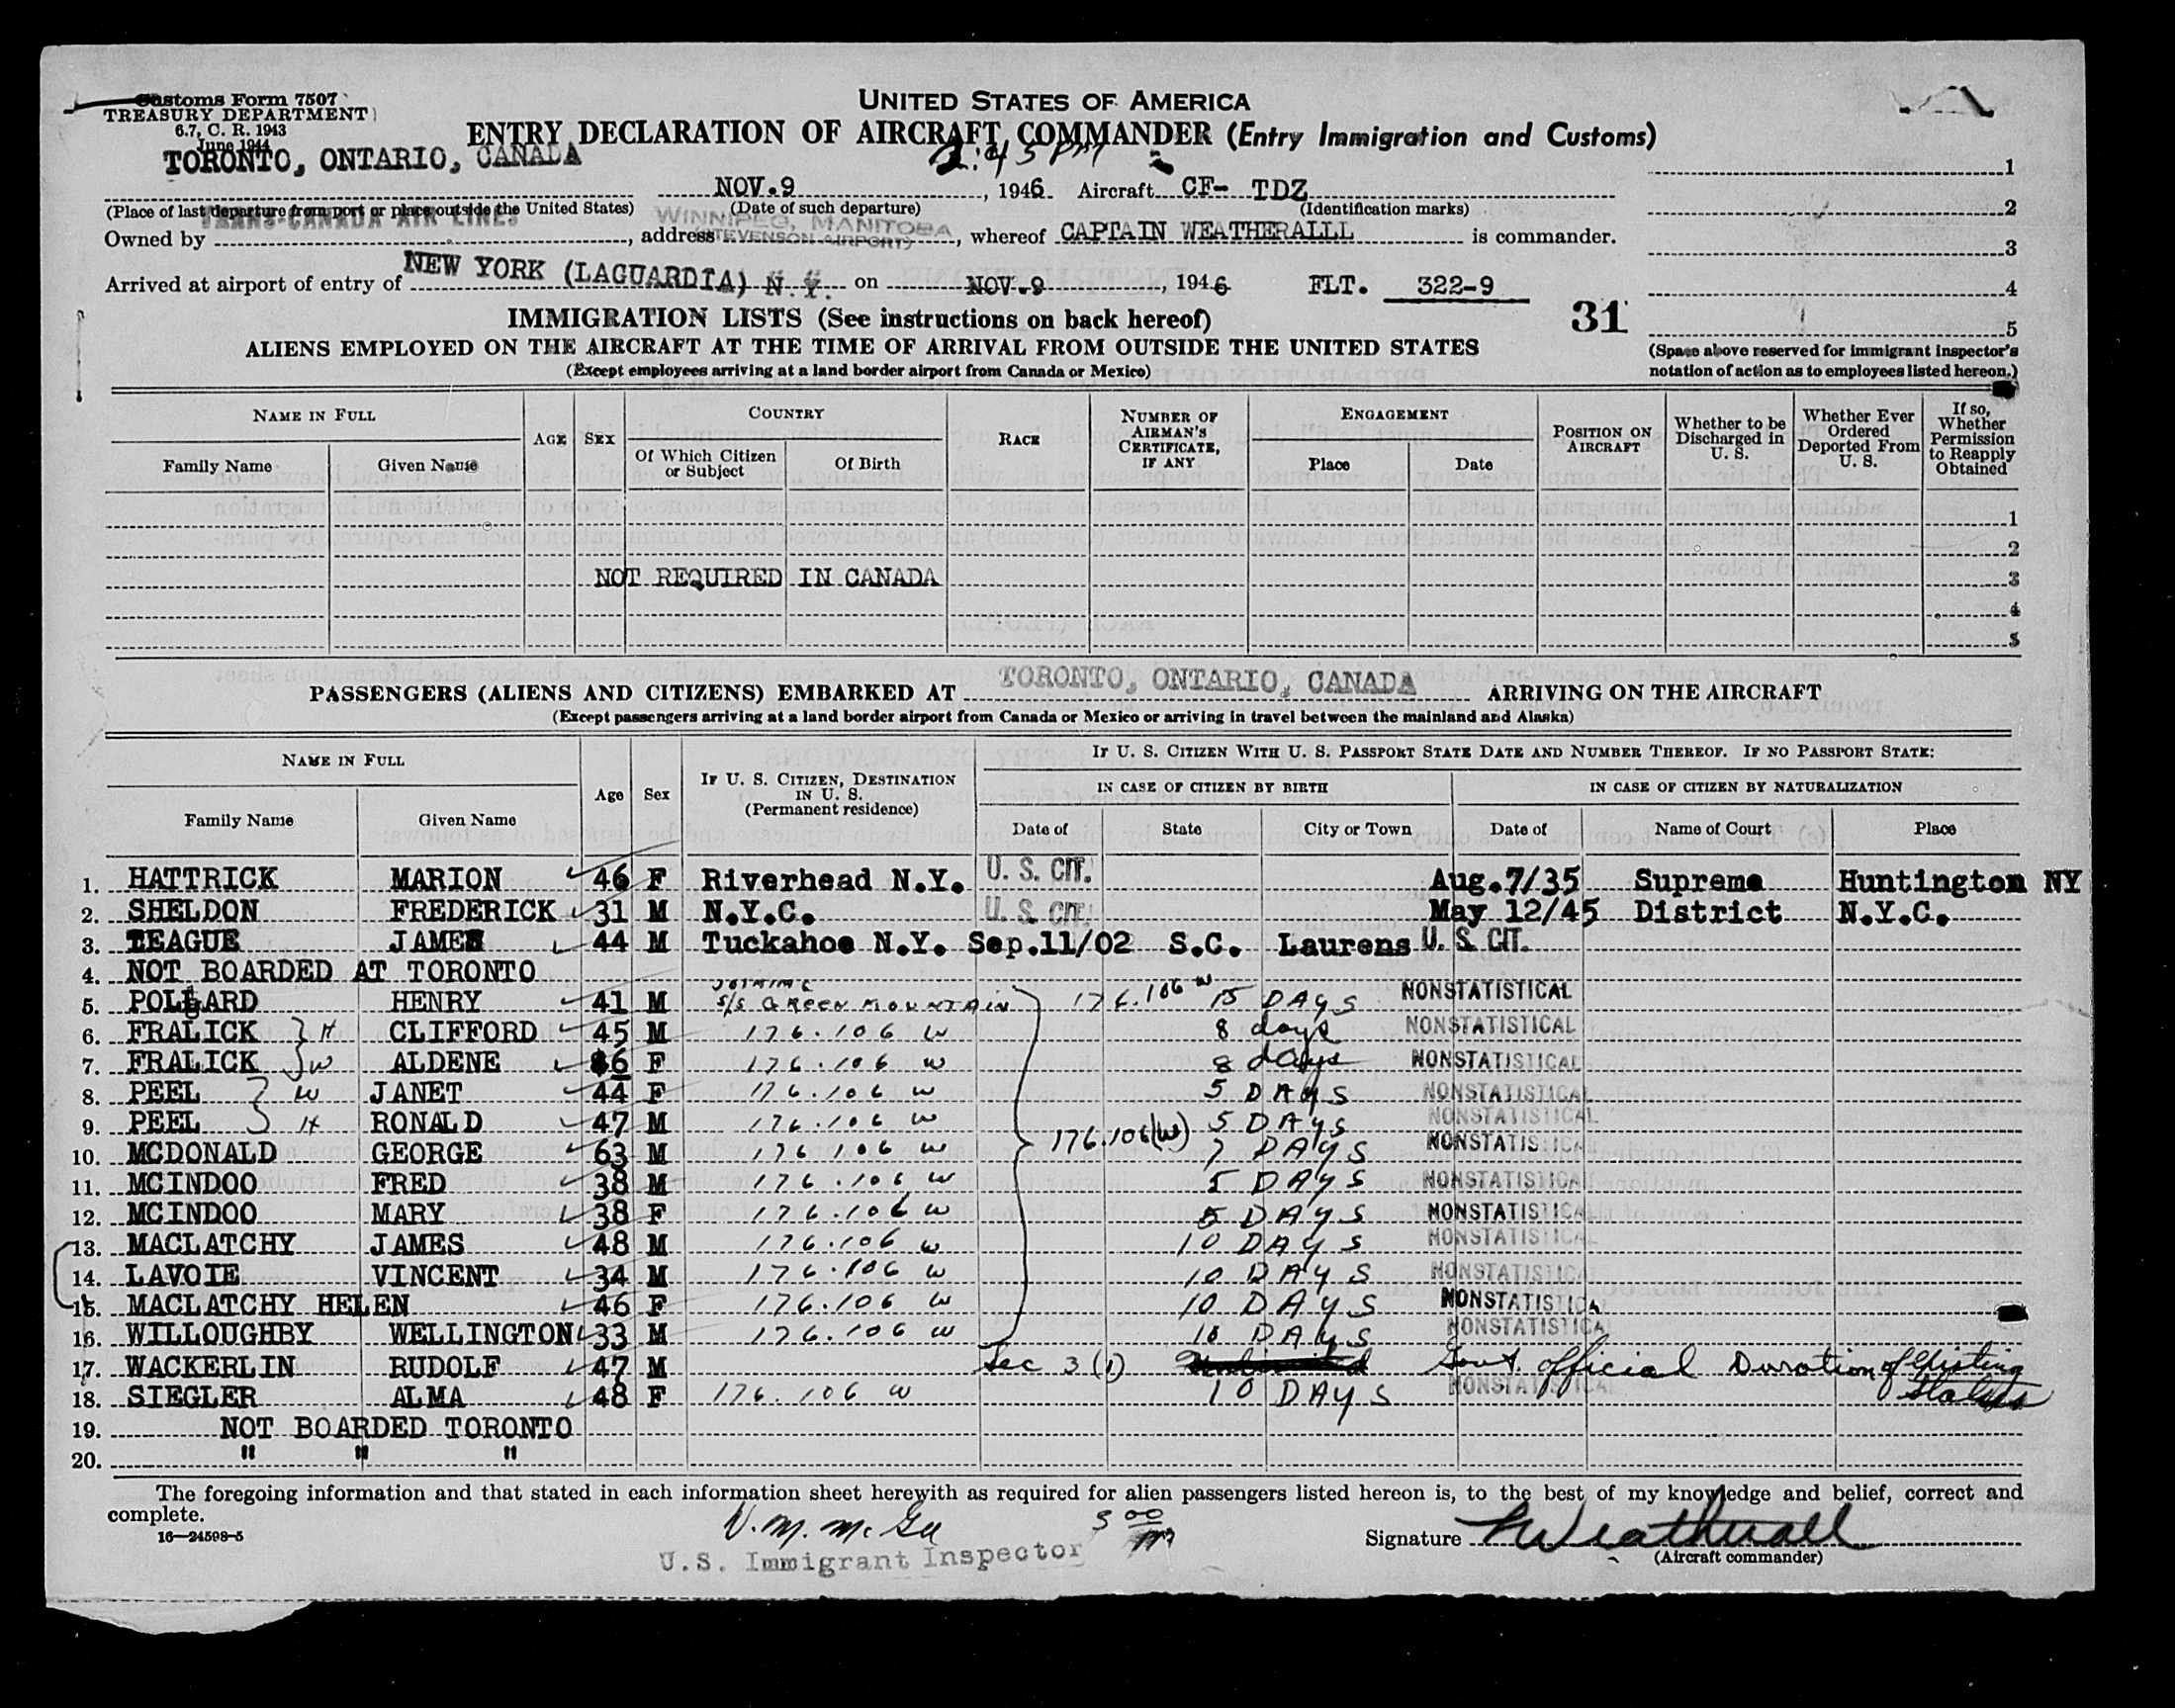 Customs Form 7507
TREASURY DEPARTMENT
6.7, C. R. 1943
June 1944
UNITED STATES OF AMERICA
ENTRY DECLARATION OF AIRCRAFT COMMANDER (Entry Immigration and Customs)
2:45 PM
TORONTO, ONTARIO, CANADA NOV.9, 1946 Aircraft CF- TDZ
(Place of last departure from port or place outside the United States) (Date of such departure) (Identification marks)
Owned by TRANS-CANADA AIR LINES, address WINNIPEG, MANITOBA (STEVENSON AIRPORT), whereof CAPTAIN WEATHERALLL is commander.
Arrived at airport of entry of NEW YORK (LAGUARDIA) N.Y. on NOV.9, 1946 FLT. 322-9
31
1
2
3
4
5
(Space above reserved for immigrant inspector's notation of action as to employees listed hereon.)
IMMIGRATION LISTS (See instructions on back hereof)
ALIENS EMPLOYED ON THE AIRCRAFT AT THE TIME OF ARRIVAL FROM OUTSIDE THE UNITED STATES
(Except employees arriving at a land border airport from Canada or Mexico)
NAME IN FULL AGE SEX COUNTRY RACE NUMBER OF AIRMAN'S CERTIFICATE, IF ANY ENGAGEMENT POSITION ON AIRCRAFT Whether to be Discharged in U. S. Whether Ever Ordered Deported From U. S. If so, Whether Permission to Reapply Obtained
Family Name Given Name Of Which Citizen or Subject Of Birth Place Date
1
2
NOT REQUIRED IN CANADA 3
4
5
PASSENGERS (ALIENS AND CITIZENS) EMBARKED AT TORONTO, ONTARIO, CANADA ARRIVING ON THE AIRCRAFT
(Except passengers arriving at a land border airport from Canada or Mexico or arriving in travel between the mainland and Alaska)
NAME IN FULL Age Sex IF U. S. CITIZEN, DESTINATION IN U. S. (Permanent residence) IF U. S. CITIZEN WITH U. S. PASSPORT STATE DATE AND NUMBER THEREOF. IF NO PASSPORT STATE:
IN CASE OF CITIZEN BY BIRTH IN CASE OF CITIZEN BY NATURALIZATION
Family Name Given Name Date of State City or Town Date of Name of Court Place
1. HATTRICK MARION 46 F Riverhead N.Y. U. S. CIT. Aug.7/35 Supreme Huntington NY
2. SHELDON FREDERICK 31 M N.Y.C. U. S. CIT. May 12/45 District N.Y.C.
3. TEAGUE JAMES 44 M Tuckahoe N.Y. Sep.11/02 S.C. Laurens U. S. CIT.
4. NOT BOARDED AT TORONTO
5. POLLARD HENRY 41 M JOINING S/S GREEN MOUNTAIN 176.106 W 15 DAYS NONSTATISTICAL
6. FRALICK } H CLIFFORD 45 M 176.106 W 8 days NONSTATISTICAL
7. FRALICK } W ALDENE 46 F 176.106 W 8 days NONSTATISTICAL
8. PEEL } W JANET 44 F 176.106 W 5 DAYS NONSTATISTICAL
9. PEEL } H RONALD 47 M 176.106 W 5 DAYS NONSTATISTICAL
10. MCDONALD GEORGE 63 M 176 106 W 176.106(W) 7 DAYS NONSTATISTICAL
11. MCINDOO FRED 38 M 176.106 W 5 DAYS NONSTATISTICAL
12. MCINDOO MARY 38 F 176.106 W 5 DAYS NONSTATISTICAL
13. MACLATCHY JAMES 48 M 176.106 W 10 DAYS NONSTATISTICAL
14. LAVOIE VINCENT 34 M 176.106 W 10 DAYS NONSTATISTICAL
15. MACLATCHY HELEN 46 F 176.106 W 10 DAYS NONSTATISTICA
16. WILLOUGHBY WELLINGTON 33 M 176.106 W 10 DAYS NONSTATISTICA
17. WACKERLIN RUDOLF 47 M Sec 3(1) Govt. Official Duration of Existing Status
18. SIEGLER ALMA 48 F 176.106 W 10 DAYS NONSTATISTICAL
19. NOT BOARDED TORONTO
20. " " "
The foregoing information and that stated in each information sheet herewith as required for alien passengers listed hereon is, to the best of my knowledge and belief, correct and
complete.
16—24598-5
V. M. McGee 3 00 PM Signature Weatherall
U.S. Immigrant Inspector (Aircraft commander)